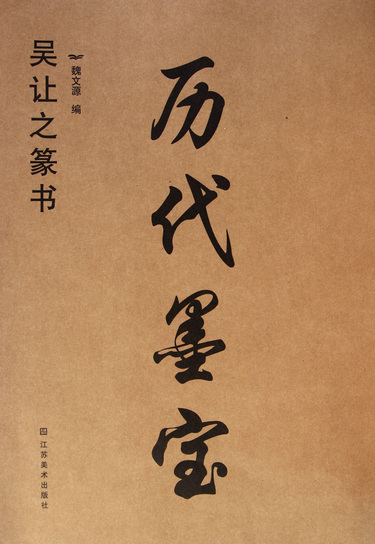 历代墨宝
吴让之篆书
魏文源 编
江苏美术出版社